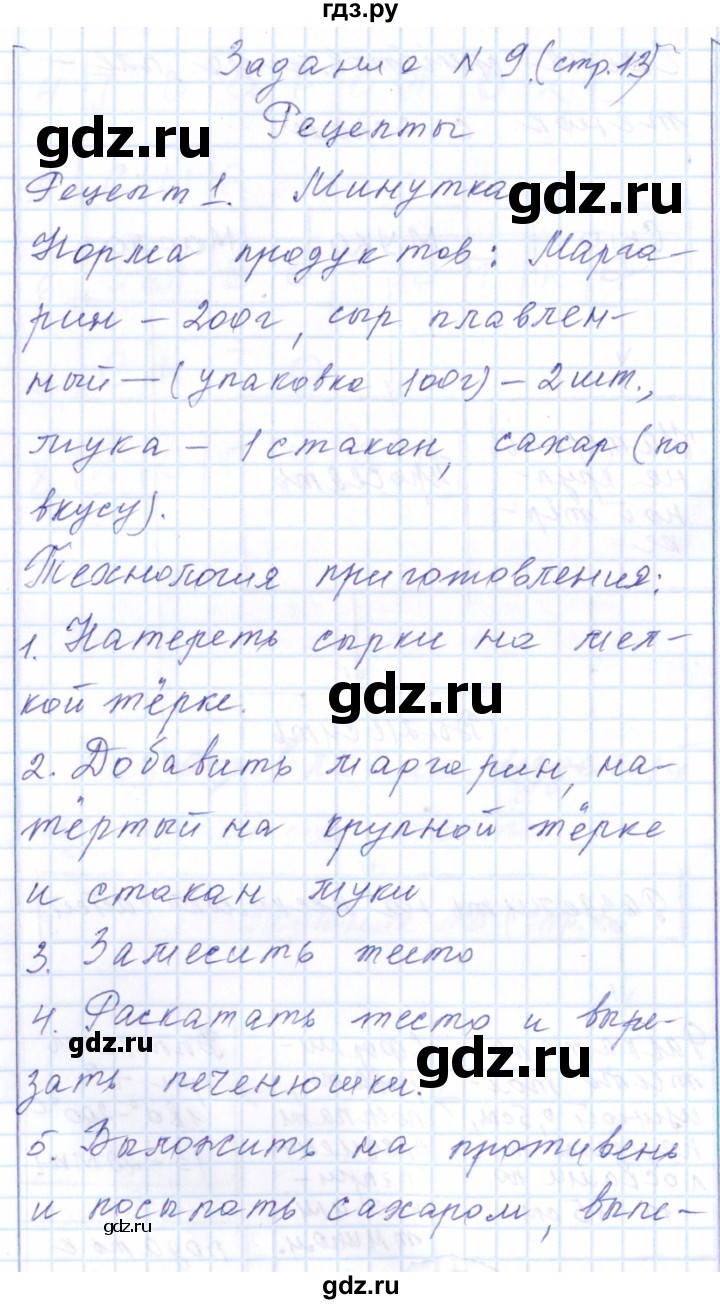 гдз.ру
Задание N 9. (стр.13)
Рецепты
gdz.ru
Рецепт 1. Минутка
gdz.ru
Норма продуктов: Марга-
рин – 200г, сыр плавлен-
ный – (упаковка 100г) – 2 шт.,
мука – 1 стакан, сахар (по
вкусу).
Технология приготовления:
1. Натереть сырки на мел-
кой тёрке.
gdz.ru
2. Добавить маргарин, на-
тёртый на крупной тёрке
и стакан муки
3. Замесить тесто
4. Раскатать тесто и выре-
gdz.ru
gdz.ru
зать печенюшки.
5. Выложить на противень
и посыпать сахаром, выпе-
gdz.ru
gdz.ru